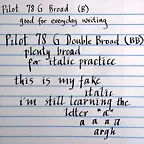 Pilot 78 G Broad (B)
good for everyday writing
Pilot 78 G Double Broad (BB)
plenty broad
for italic practice
this is my fake
italic
i'm still learning the
letter "a"
a a a a
argh